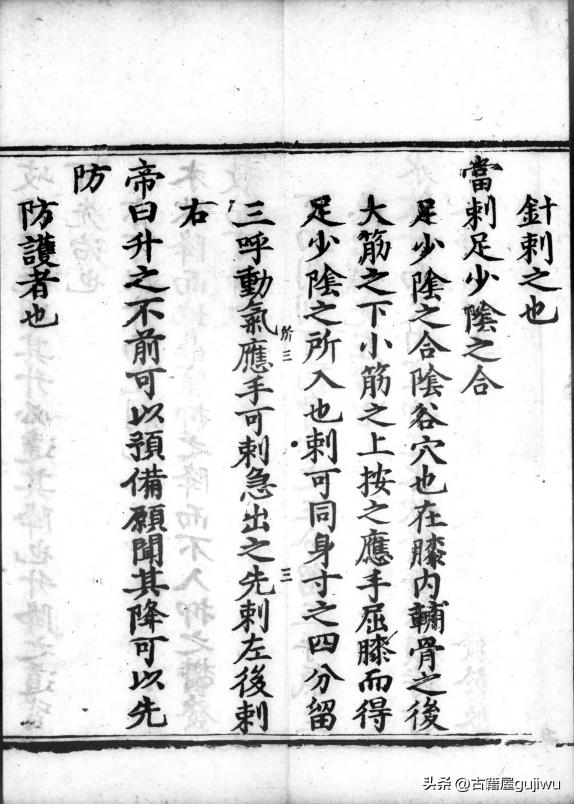 針刺之也
當刺足少陰之合
足少陰之合陰谷穴也在膝内輔骨之後
大筋之下小筋之上按之應手屈膝而得
足少陰之所入也刺可同身寸之四分留
三呼動氣應手可刺急出之先刺左後刺
右
帝曰升之不前可以預備願聞其降可以先
防
防護者也
头条 @古籍屋gujiwu